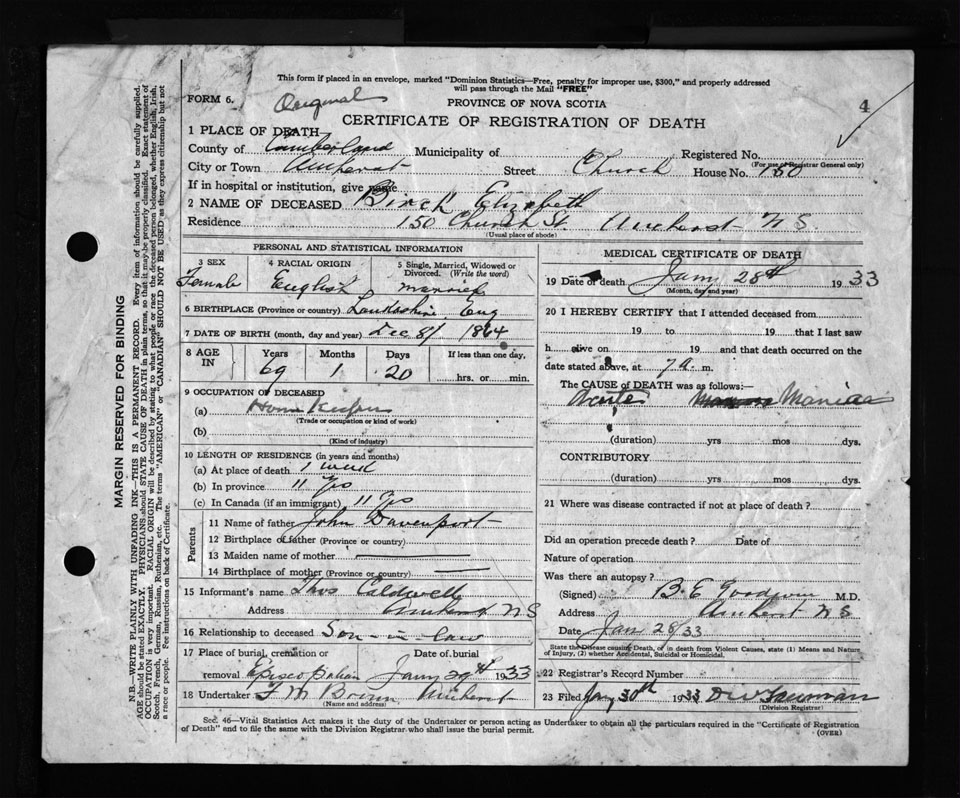 This form if placed in an envelope, marked "Dominion Statistics—Free, penalty for improper use, $300," and properly addressed
will pass through the Mail "FREE"
FORM 6. Original
PROVINCE OF NOVA SCOTIA
4
CERTIFICATE OF REGISTRATION OF DEATH
1 PLACE OF DEATH
County of Cumberland Municipality of Registered No.
(For use of Registrar General only)
City or Town Amherst Street Church House No. 150
If in hospital or institution, give name
2 NAME OF DECEASED Birch Elizabeth
Residence 150 Church St. Amherst N S.
(Usual place of abode)
PERSONAL AND STATISTICAL INFORMATION
3 SEX 4 RACIAL ORIGIN 5 Single, Married, Widowed or Divorced. (Write the word)
Female English married
6 BIRTHPLACE (Province or country) Eng
7 DATE OF BIRTH (month, day and year) Dec 8/ 1864
8 AGE IN Years Months Days If less than one day,
69 1 20 hrs. or min.
9 OCCUPATION OF DECEASED
(a)
(Trade or occupation or kind of work)
(b)
(Kind of industry)
10 LENGTH OF RESIDENCE (in years and months)
(a) At place of death 1 week
(b) In province 11 Yrs
(c) In Canada (if an immigrant) 11 Yrs
Parents
11 Name of father John Davenport
12 Birthplace of father (Province or country)
13 Maiden name of mother
14 Birthplace of mother (Province or country)
15 Informant's name Thos Caldwell
Address Amherst N S
16 Relationship to deceased Son-in-law
17 Place of burial, cremation or removal Date of burial
Episcopalian Jany 29th 1933
18 Undertaker F M Brown Amherst
(Name and address)
MEDICAL CERTIFICATE OF DEATH
19 Date of death Jany 28th 1933
(Month, day and year)
20 I HEREBY CERTIFY that I attended deceased from
19 to 19 that I last saw
h alive on 19 and that death occurred on the
date stated above, at 7 a. m.
The CAUSE of DEATH was as follows:—
Acute Mania
(duration) yrs mos dys.
CONTRIBUTORY
(duration) yrs mos dys.
21 Where was disease contracted if not at place of death?
Did an operation precede death? Date of
Nature of operation
Was there an autopsy?
(Signed) B. E. Goodwin M.D.
Address Amherst N S
Date Jan 28/33
State the Disease causing Death, or in death from Violent Causes, state (1) Means and Nature of Injury, (2) whether Accidental, Suicidal or Homicidal.
22 Registrar's Record Number
23 Filed Jany 30th 1933
(Division Registrar)
Sec. 46—Vital Statistics Act makes it the duty of the Undertaker or person acting as Undertaker to obtain all the particulars required in the "Certificate of Registration
of Death" and to file the same with the Division Registrar who shall issue the burial permit.
(OVER)
MARGIN RESERVED FOR BINDING
N.B.—WRITE PLAINLY WITH UNFADING INK—THIS IS A PERMANENT RECORD. Every item of information should be carefully supplied.
AGE should be stated EXACTLY. PHYSICIANS should STATE CAUSE OF DEATH in plain terms, so that it may be properly classified. Exact statement of
OCCUPATION is very important. RACIAL ORIGIN will be described by stating to what people or race the deceased person belonged, whether English, Irish,
Scotch, French, German, Russian, Ruthenian, etc. The terms "AMERICAN" or "CANADIAN" SHOULD NOT BE USED as they express citizenship but not
a race or people. See instructions on back of Certificate.